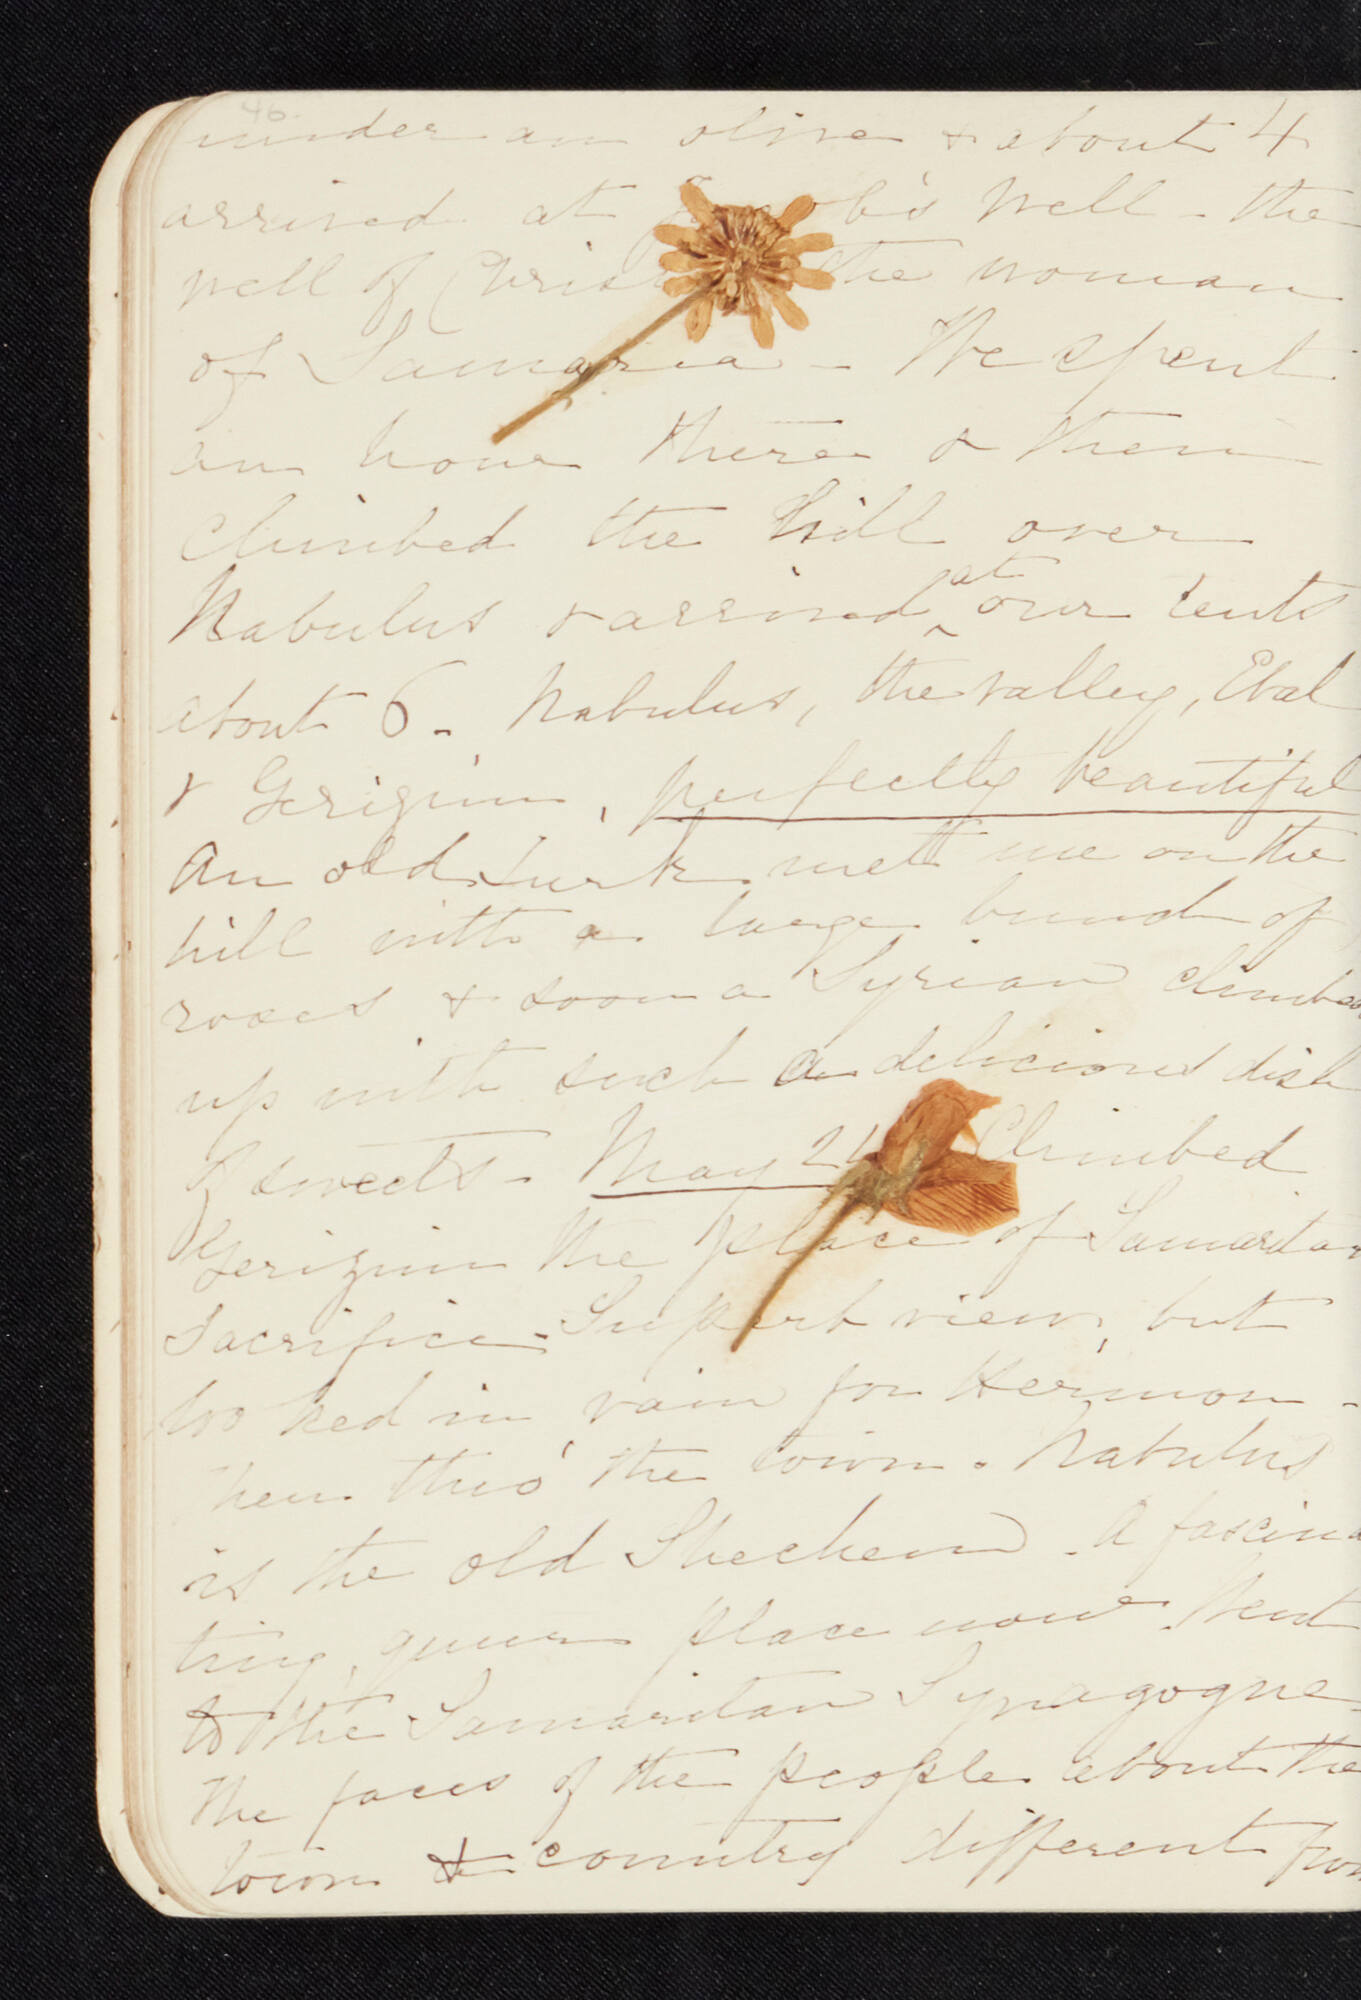 46.
under an olive & about 4
arrived at b's Well - the
well of Christ the woman
of Samaria - We spent
an hour there & then
climbed the hill over
Nabulus & arrived ^at our tents
about 6. Nabulus, the valley, Ebal
& Gerizim, perfectly beautiful
An old Turk met me on the
hill with a large bunch of
roses & soon a Syrian climbed
up with such a delicious dish
of sweets - May 24 Climbed
Gerizim the place of Samaritan
Sacrifice - Superb view, but
looked in vain for Hermon -
Then thro' the town. Nabulus
is the old Shechem - A fascina
ting, queer place now. Went
to the Samaritan Synagogue
The faces of the people about the
town & country different from